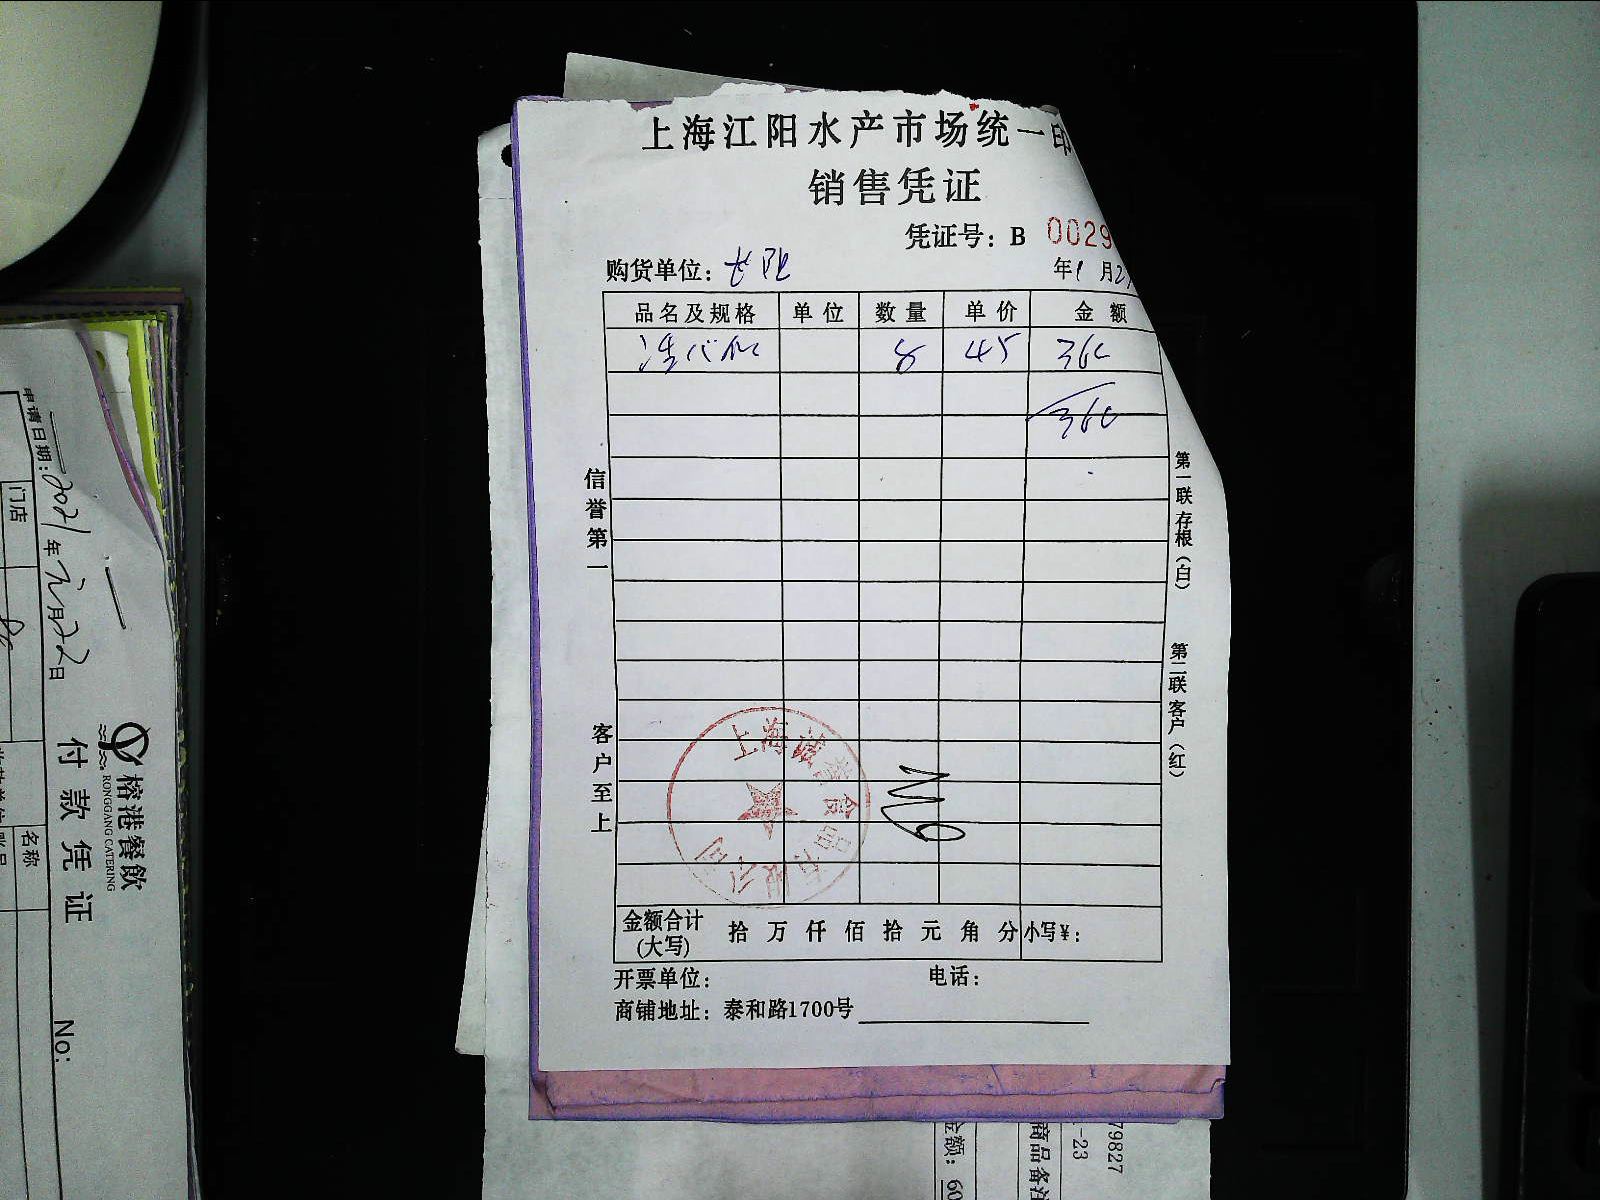 上海江阳水产市场统一印
销售凭证
凭证号：B 0029
购货单位：
年1月2
品名及规格 单位 数量 单价 金额
8 45 360
360
信誉第一
客户至上
第一联 存根（白）
第二联 客户（红）
上海诚誉食品有限公司
金额合计（大写） 拾 万 仟 佰 拾 元 角 分 小写￥：
开票单位： 电话：
商铺地址：泰和路1700号
申请日期：2021年元月22日
门店
榕港餐飲
RONGGANG CATERING
付款凭证
No:
名称
金额：60
商品备注
-23
79827